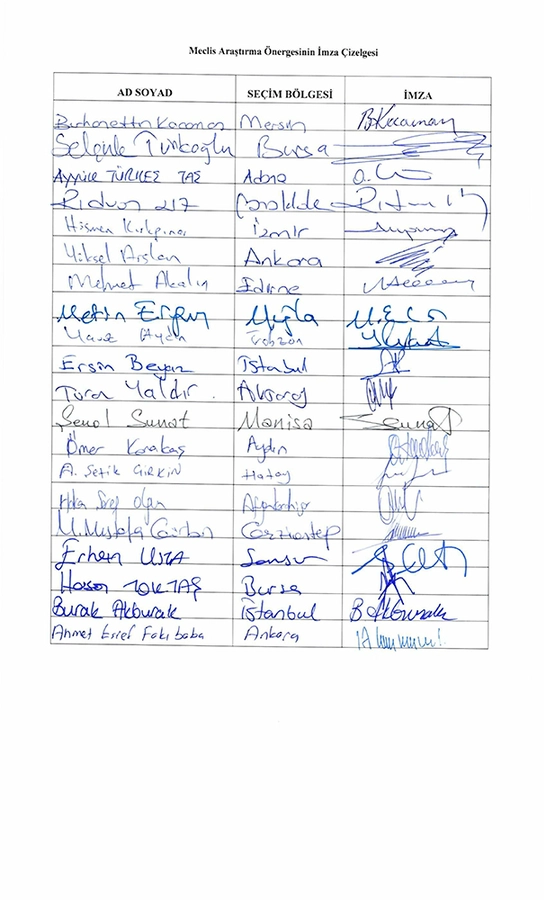 Meclis Araştırma Önergesinin İmza Çizelgesi
AD SOYAD SEÇİM BÖLGESİ İMZA
Burhanettin Kocamaz Mersin B.Kocamaz
Selçuk Türkoğlu Bursa
Ayyüce TÜRKEŞ TAŞ Adana
Rıdvan UZ Çanakkale
Hüsmen Kırkpınar İzmir
Yüksel Arslan Ankara
Mehmet Akalın Edirne
Metin Ergun Muğla
Yavuz Aydın Trabzon
Ersin Beyaz İstanbul
Turan Yaldır Aksaray
Şenol Sunat Manisa Sunat
Ömer Karakaş Aydın
A. Şefik ÇİRKİN Hatay
Hakan Şeref Olgun Afyonkarahisar
M. Mustafa Gürban Gaziantep
Erhan USTA Samsun
Hasan TOKTAŞ Bursa
Burak Akburak İstanbul B Akburak
Ahmet Eşref Fakıbaba Ankara